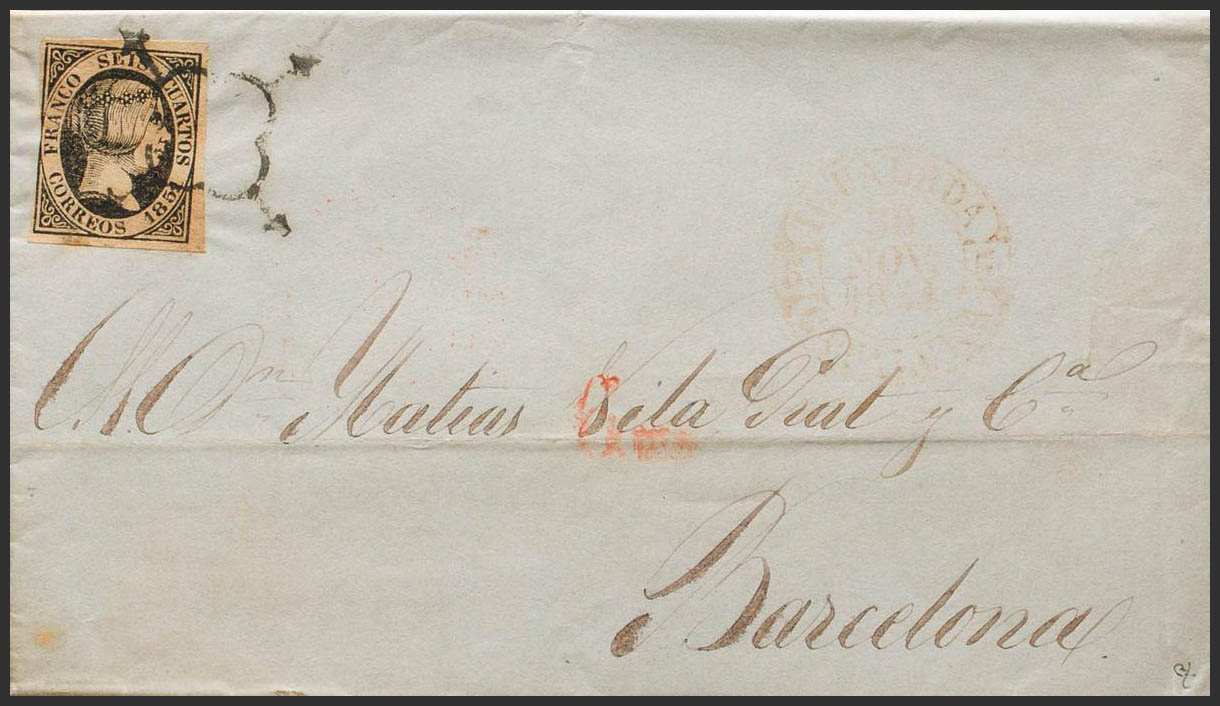 FRANCO SEIS CUARTOS
CORREOS 1851
NOV
S. Dn. Matias Vila Prat y Cª
Barcelona.